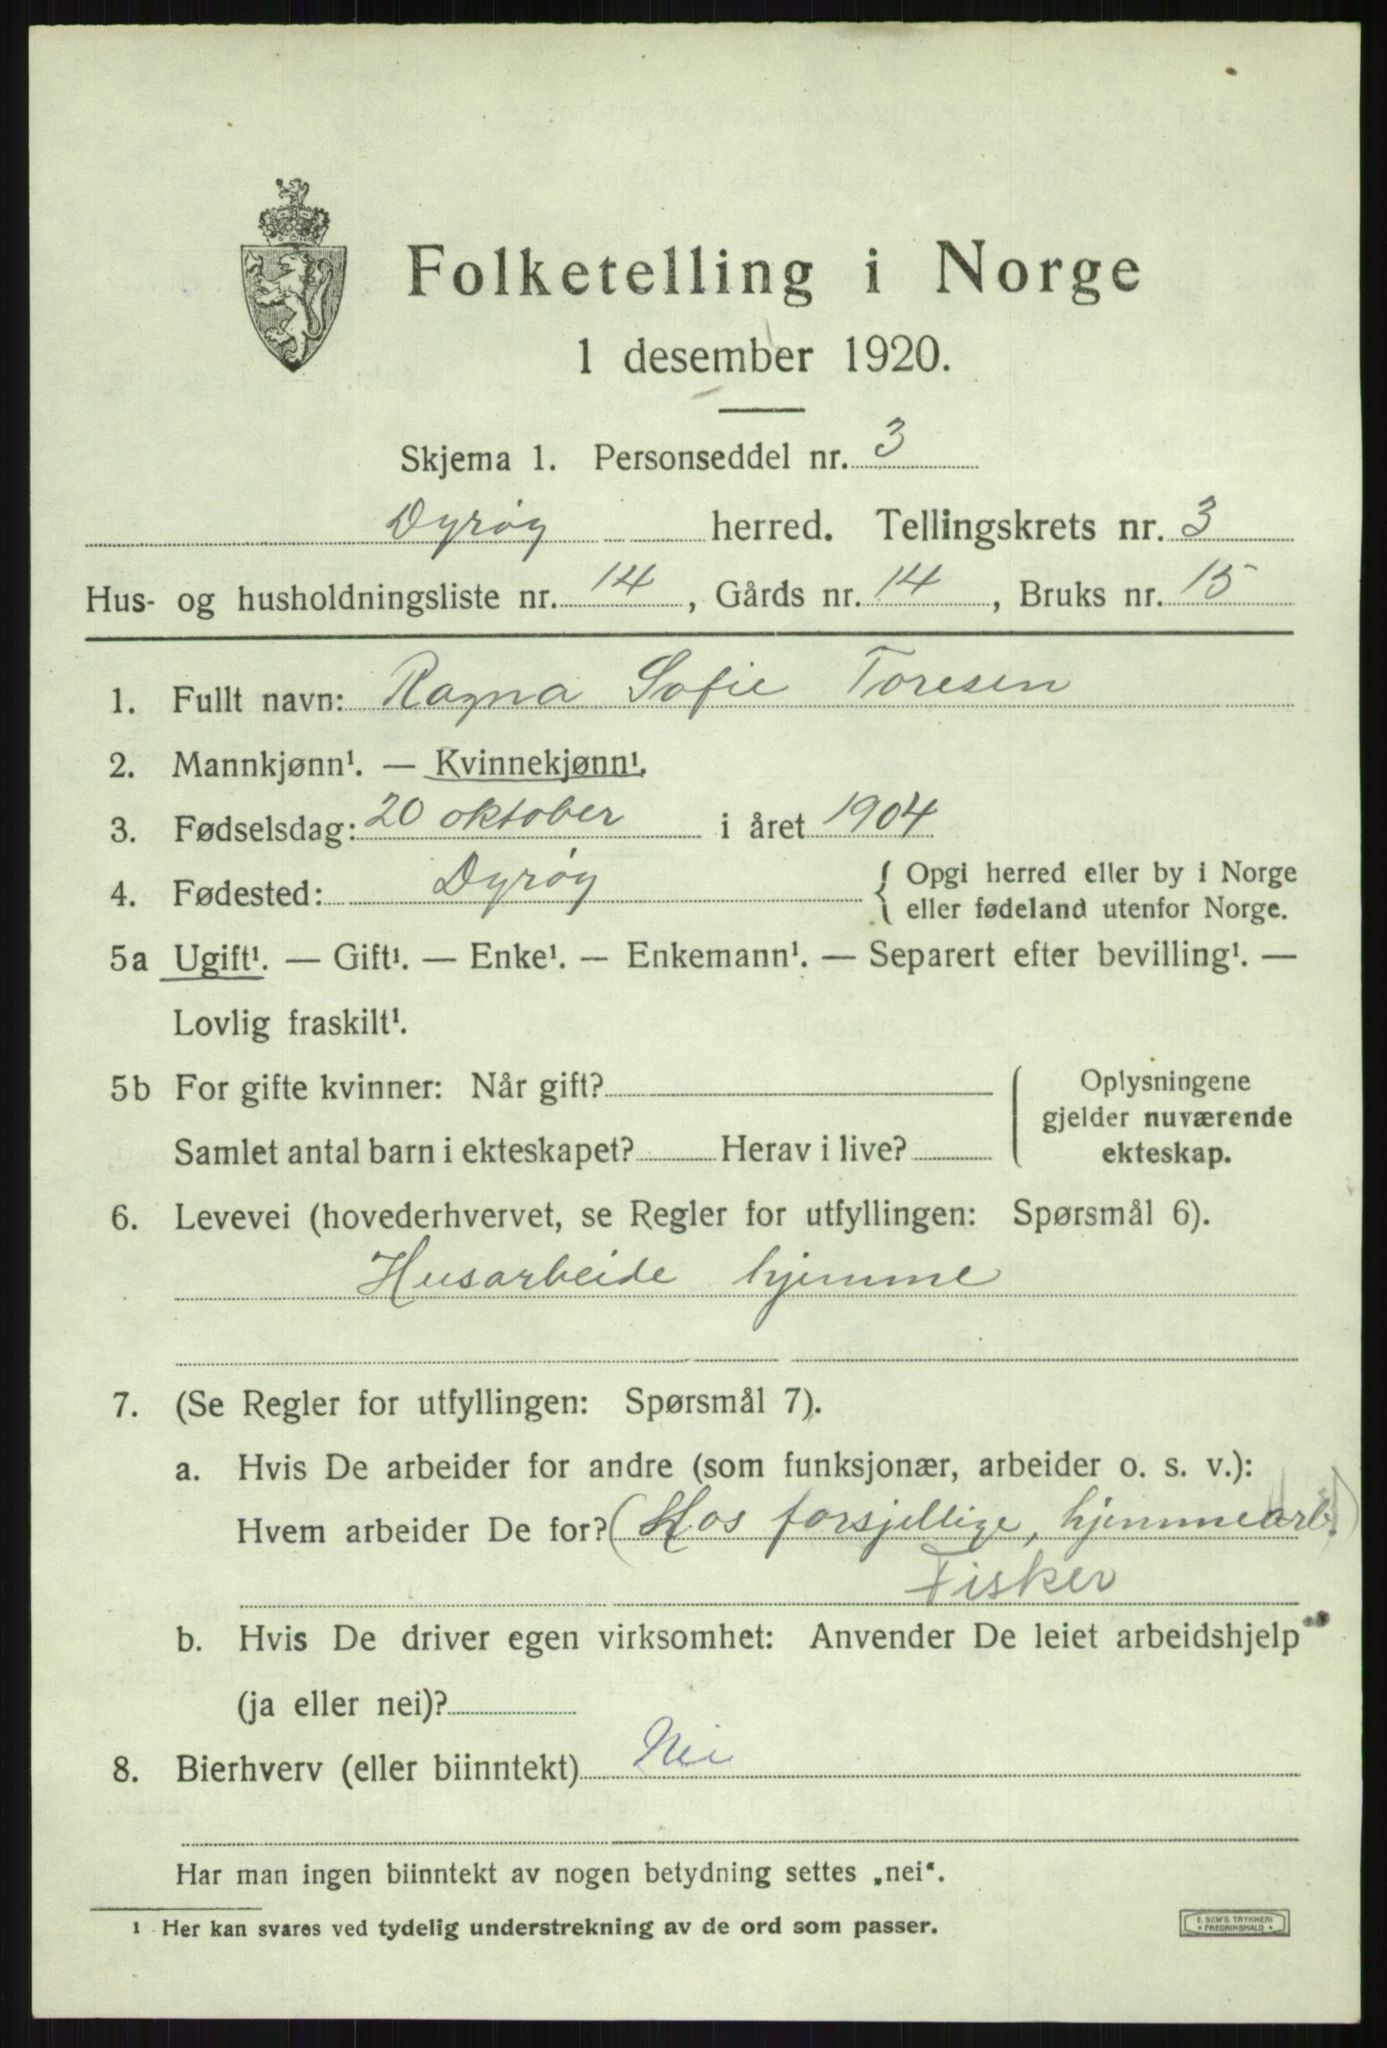 Folketelling i Norge
1 desember 1920.
Skjema 1. Personseddel nr. 3
Dyrøy herred. Tellingskrets nr. 3
Hus- og husholdningsliste nr. 14, Gårds nr. 14, Bruks nr. 15
1. Fullt navn: Ragna Sofie Toresen
2. Mannkjønn¹. — Kvinnekjønn¹.
3. Fødselsdag: 20 oktober i året 1904
4. Fødested: Dyrøy { Opgi herred eller by i Norge
eller fødeland utenfor Norge.
5a Ugift¹. — Gift¹. — Enke¹. — Enkemann¹. — Separert efter bevilling¹. —
Lovlig fraskilt¹.
5b For gifte kvinner: Når gift?
Samlet antal barn i ekteskapet? Herav i live?
Oplysningene
gjelder nuværende
ekteskap.
6. Levevei (hovederhvervet, se Regler for utfyllingen: Spørsmål 6).
Husarbeide hjemme
7. (Se Regler for utfyllingen: Spørsmål 7).
a. Hvis De arbeider for andre (som funksjonær, arbeider o. s. v.):
Hvem arbeider De for? (Hos forsjellige, hjemmearb.)
Fisker
b. Hvis De driver egen virksomhet: Anvender De leiet arbeidshjelp
(ja eller nei)?
8. Bierhverv (eller biinntekt) Nei
Har man ingen biinntekt av nogen betydning settes „nei“.
1 Her kan svares ved tydelig understrekning av de ord som passer.
E. SEM'S TRYKKERI
* FREDRIKSHALD *